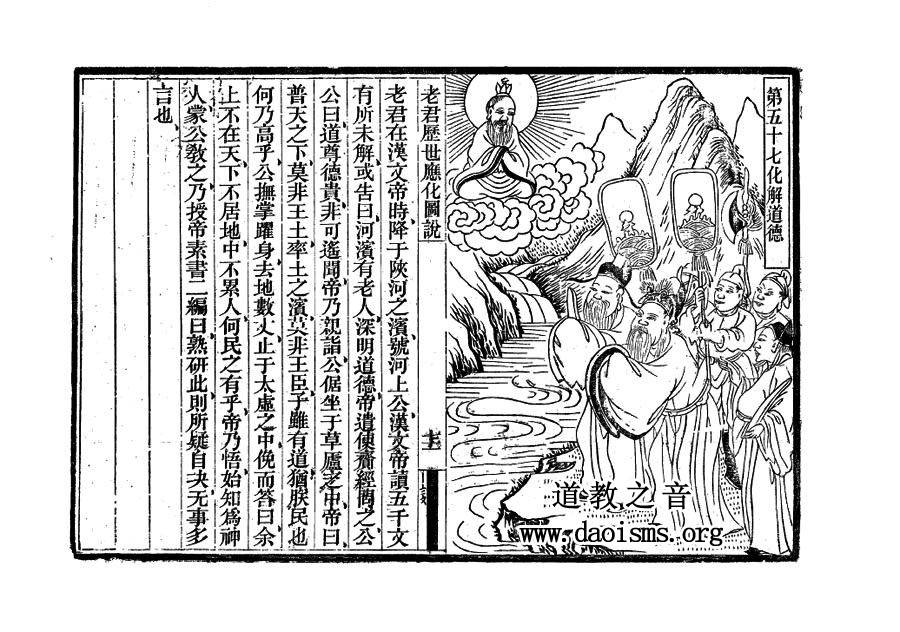 第五十七化解道德
老君歷世應化圖說
老君在漢文帝時降于陝河之濱號河上公漢文帝讀五千文
有所未解或告曰河濱有老人深明道德帝遣使齎經問之公
公曰道尊德貴非可遙聞帝乃親詣公倨坐于草廬之中帝曰
普天之下莫非王土率土之濱莫非王臣子雖有道猶朕民也
何乃高乎公撫掌躍身去地數丈止于太虛之中俛而答曰余
上不在天下不居地中不累人何民之有乎帝乃悟始知為神
人蒙公教之乃授帝素書二編曰熟研此則所疑自决无事多
言也
道教之音
www.daoisms.org